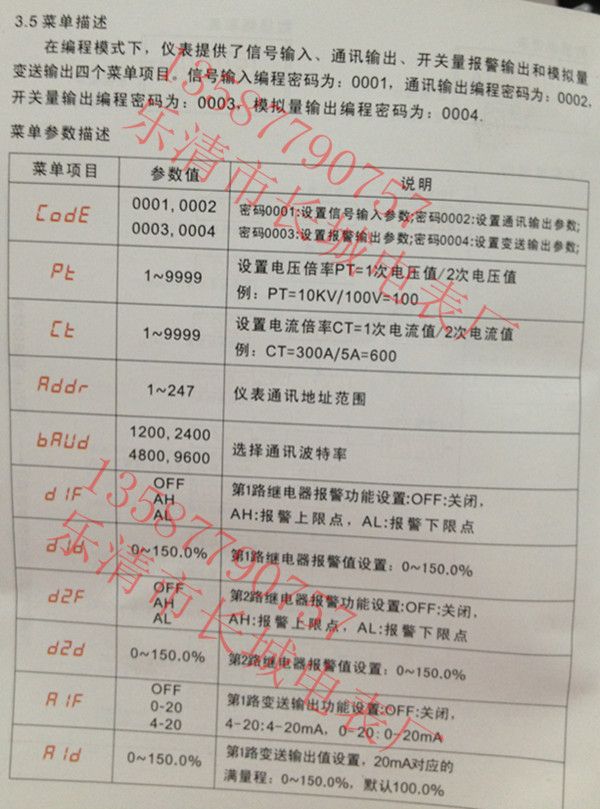 3.5 菜单描述
在编程模式下，仪表提供了信号输入、通讯输出、开关量报警输出和模拟量
变送输出四个菜单项目。信号输入编程密码为：0001，通讯输出编程密码为：0002,
开关量输出编程密码为：0003，模拟量输出编程密码为：0004.
菜单参数描述
菜单项目 参数值 说明
CodE 0001, 0002 密码0001:设置信号输入参数;密码0002:设置通讯输出参数;
0003, 0004 密码0003:设置报警输出参数;密码0004:设置变送输出参数;
Pt 1~9999 设置电压倍率PT=1次电压值/2次电压值
例：PT=10KV/100V=100
Ct 1~9999 设置电流倍率CT=1次电流值/2次电流值
例：CT=300A/5A=600
Addr 1~247 仪表通讯地址范围
bAUd 1200, 2400 选择通讯波特率
4800, 9600
d1F OFF 第1路继电器报警功能设置:OFF:关闭，
AH AH:报警上限点，AL:报警下限点
AL
d1d 0~150.0% 第1路继电器报警值设置：0~150.0%
d2F OFF 第2路继电器报警功能设置:OFF:关闭，
AH AH:报警上限点，AL:报警下限点
AL
d2d 0~150.0% 第2路继电器报警值设置：0~150.0%
A1F OFF 第1路变送输出功能设置:OFF:关闭，
0-20 4-20:4-20mA，0-20：0-20mA
4-20
A1d 0~150.0% 第1路变送输出值设置，20mA对应的
满量程：0~150.0%，默认100.0%
13587790757
乐清市长城电表厂
13587790757
乐清市长城电表厂